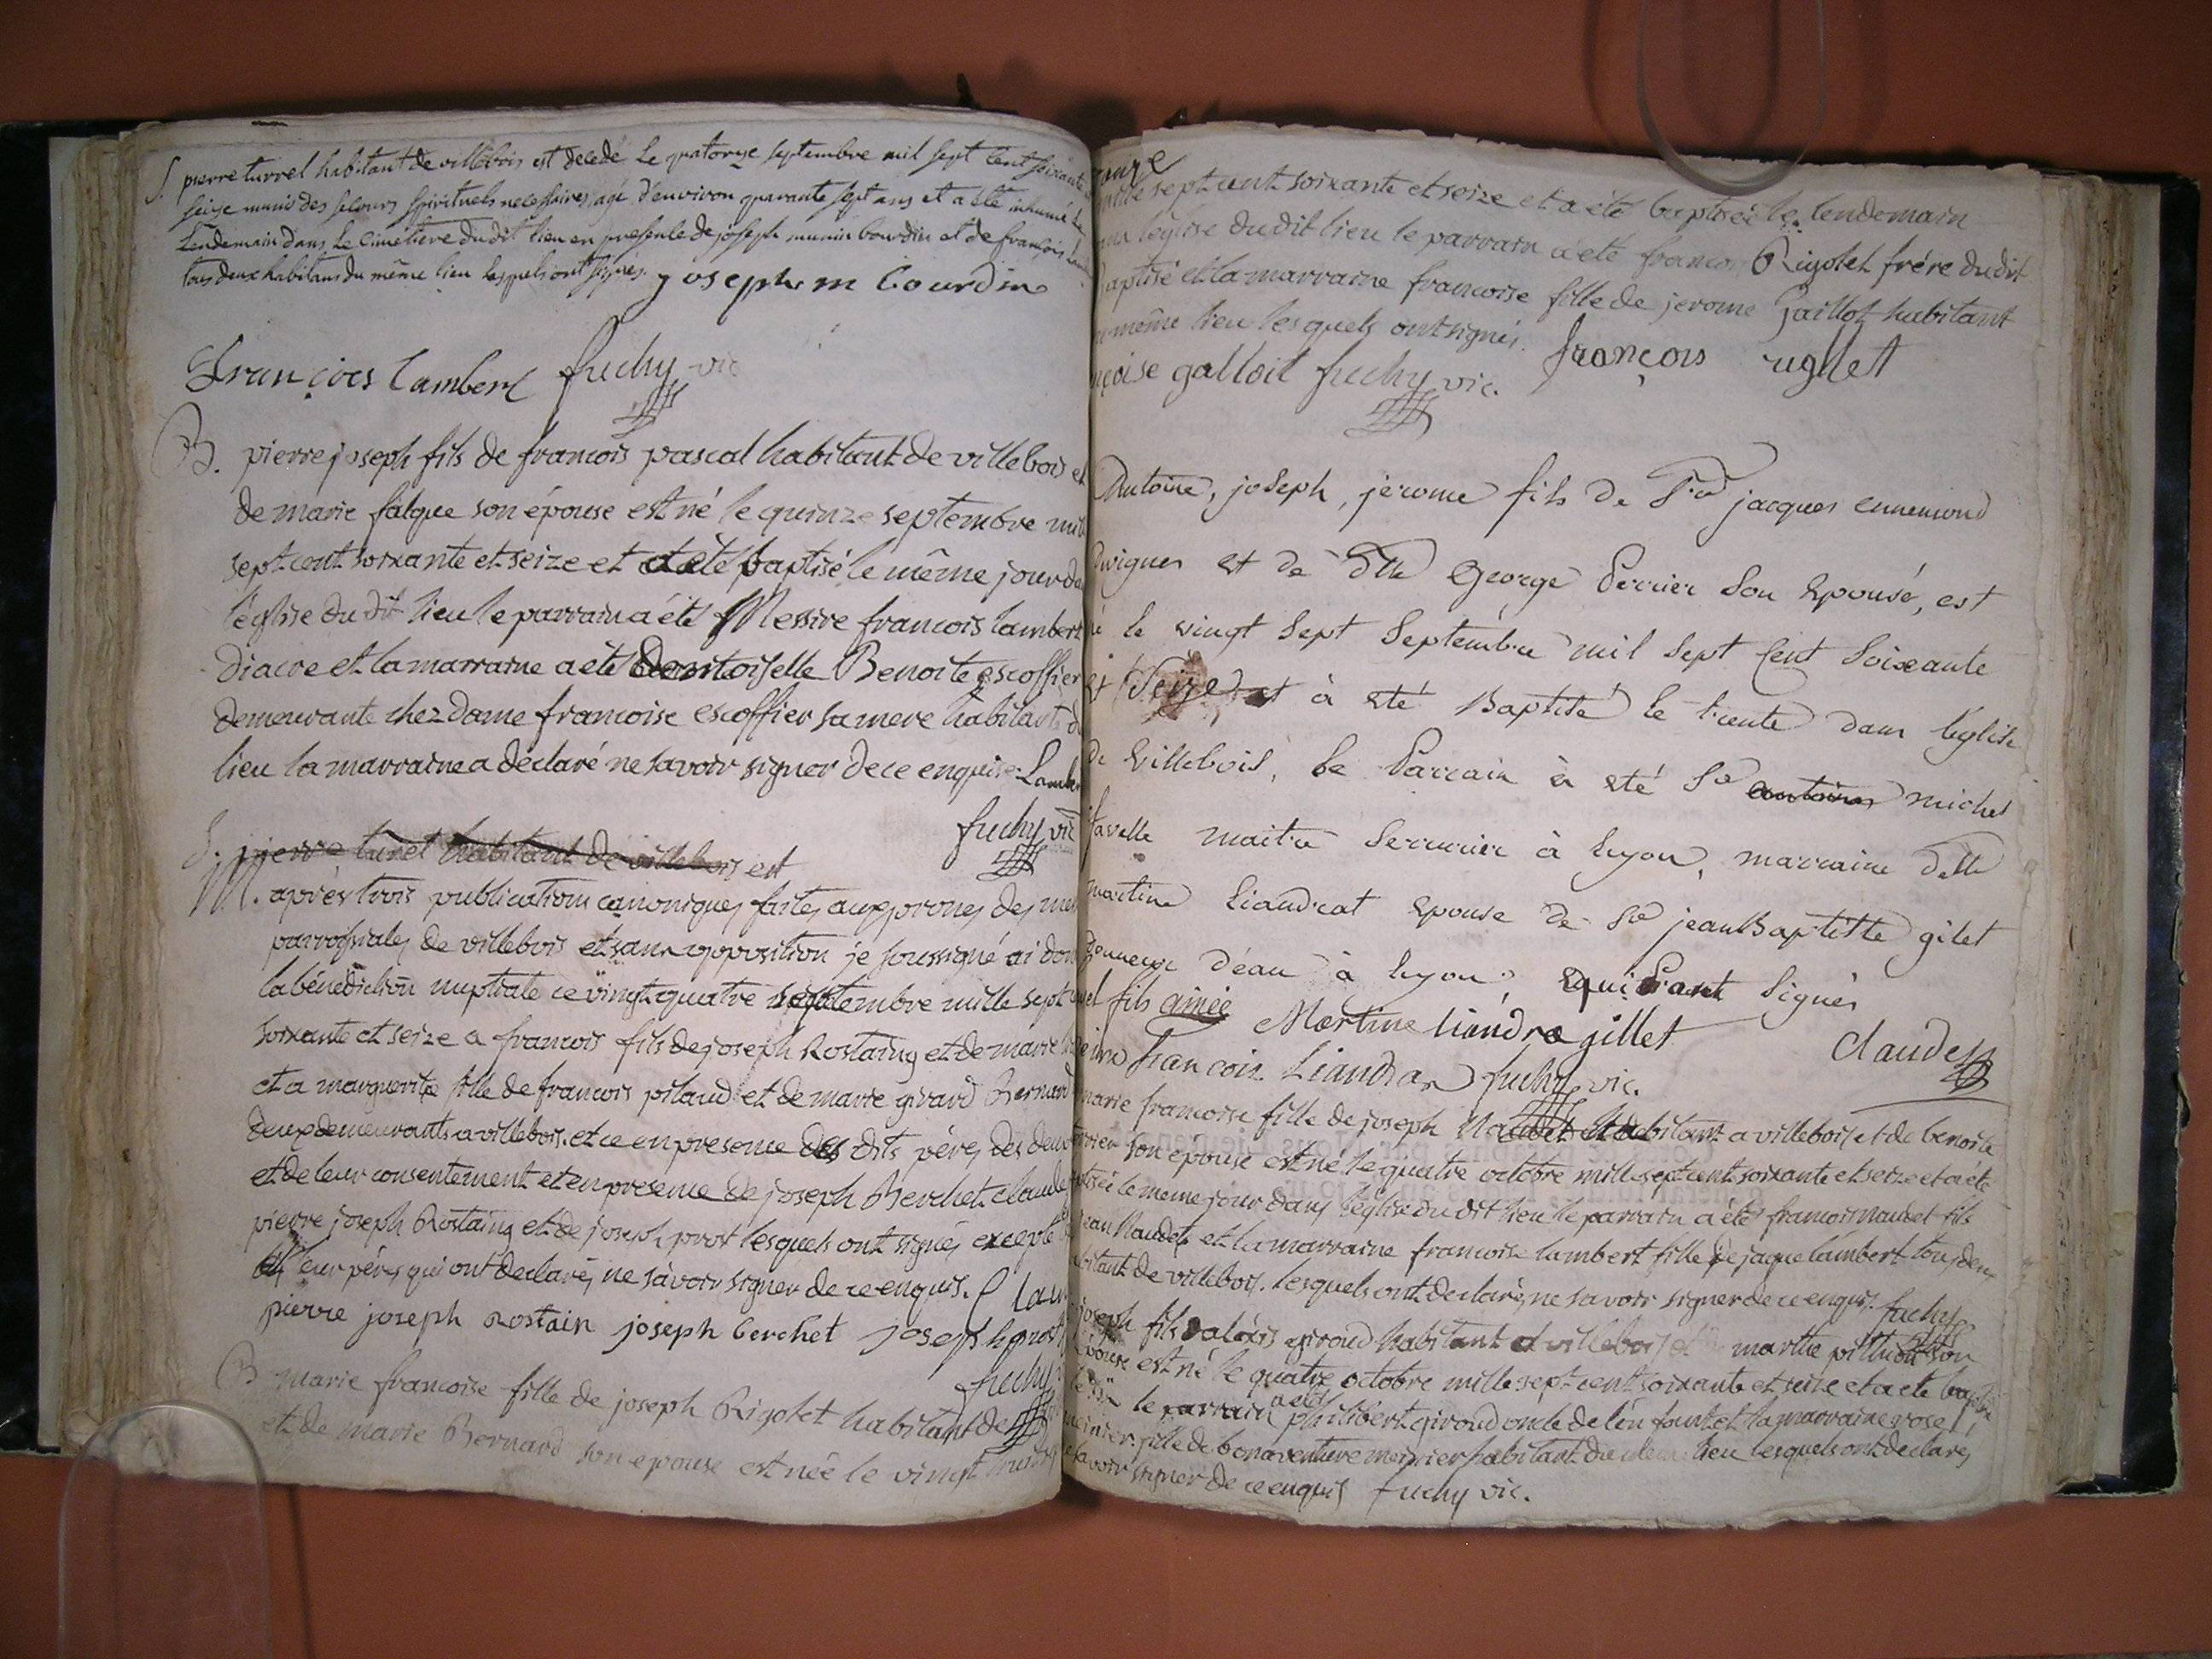 S. pierre turrel habitant de villebois est decedé Le quatorze septembre mil sept cent soixante
seize munis des secours spirituels necessaires, agé d'environ quarante sept ans et a été inhumé le
Lendemain dans Le cimetiere dudit lieu en presence de joseph munin bourdin et de françois
tous deux habitans du même lieu lesquels ont signés. joseph m bourdin
françois lambert fuchy vic
B. pierre joseph fils de francois pascal habitant de villebois et
de marie falque son épouse est né le quinze septembre mil
sept cent soixante et seize et a été baptisé le même jour
l'église du dit lieu le parrain a été Messire francois lambert
Diacre et la marraine a été Demoiselle Benoite escoffier
demeurante chez dame francoise escoffier sa mere habitante
lieu la marraine a déclaré ne savoir signer de ce enquise. Lamber
fuchy vic
S. pierre turel habitant de villebois est
M. après trois publications canoniques faites aux prones des
parroissiales de villebois et sans opposition je soussigné ai
la bénédiction nuptiale ce vingt quatre septembre mille sept
soixante et seize a francois fils de joseph Rostaing et de marie
et a marguerite fille de francois pilaud et de marie girard Bernard
deux demeurants a villebois. et ce en presence des dits péres des deux
et de leur consentement et en presence de joseph Berchet claude
pierre joseph Rostaing et de joseph prost lesquels ont signés excepté
leur péres qui ont declarés ne sàvoir signer de ce enquis.
pierre joseph Rostain joseph berchet joseph prost
fuchy
B marie francoise fille de joseph Rigotet habitant de
et de marie Bernard son epouse est née le vingt
mille sept cent soixante et seize et a été baptisée le lendemain
l'église du dit lieu le parrain a été francois Rigotet frére du dit
baptisé et la marraine francoise fille de jerome Gaillot habitant
même lieu lesquels ont signés. françois
galloit fuchy vic.
Antoine, joseph, jerome fils de Sr jacques ennemond
et de Dlle George Perrier Son Epouse, est
né le vingt Sept Septembre mil Sept Cent Soixante
et Seize et à eté Baptisé le trente dans l'église
de Villebois, Le Parrain à eté Sr antoine michel
favelle maitre Serrurier à Lyon, marraine Delle
martine Liandrat epouse de Sr jean Baptiste gilet
d'eau à Lyon, qui ont Signés
fils ainée Martine liandra gillet Claude
francois Liandra fuchy vic.
marie francoise fille de joseph Naudet habitant a villebois et de benoite
son epouse est né le quatre octobre mille sept cent soixante et seize et a été
baptisée le meme jour dans l'église du dit lieu le parrain a été francois naudet fils
jean Naudet et la marraine francoise lambert fille de jaque lambert tous deux
habitant de villebois. lesquels ont declarés ne savoir signer de ce enquis. fuchy
joseph fils d'aléxis giroud habitant a villebois et marthe son
épouse est né le quatre octobre mille sept cent soixante et seize et a été baptisé
le parrain a été philibert giroud oncle de l'énfant et la marraine rose
meinier fille de bonaventure meinier habitant du meme lieu lesquels ont declarés
savoir signer de ce enquis fuchy vic.